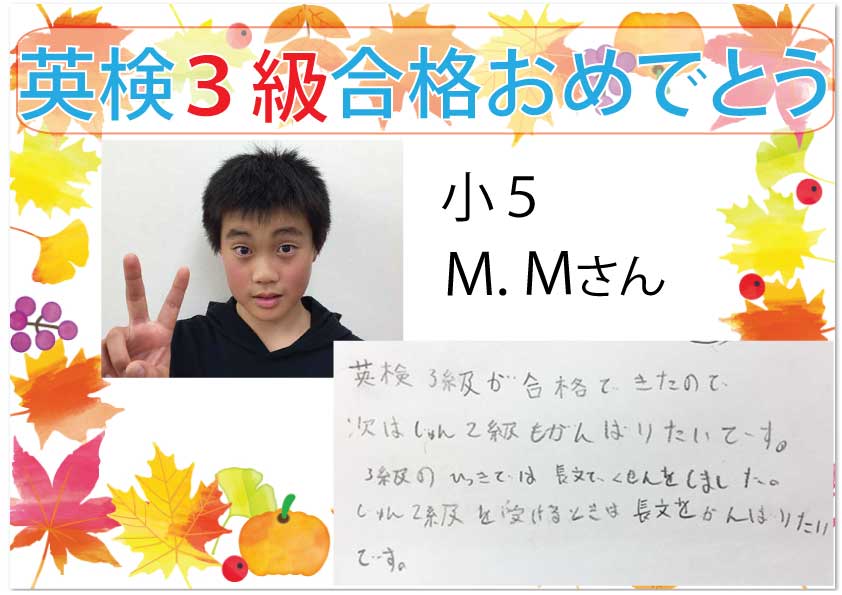 英検３級合格おめでとう
小５
M. Mさん
英検 3級が合格できたので
次はじゅん2級もがんばりたいです。
3級のひっきでは長文でくせんをしました。
じゅん2級を受けるときは長文をがんばりたい
です。